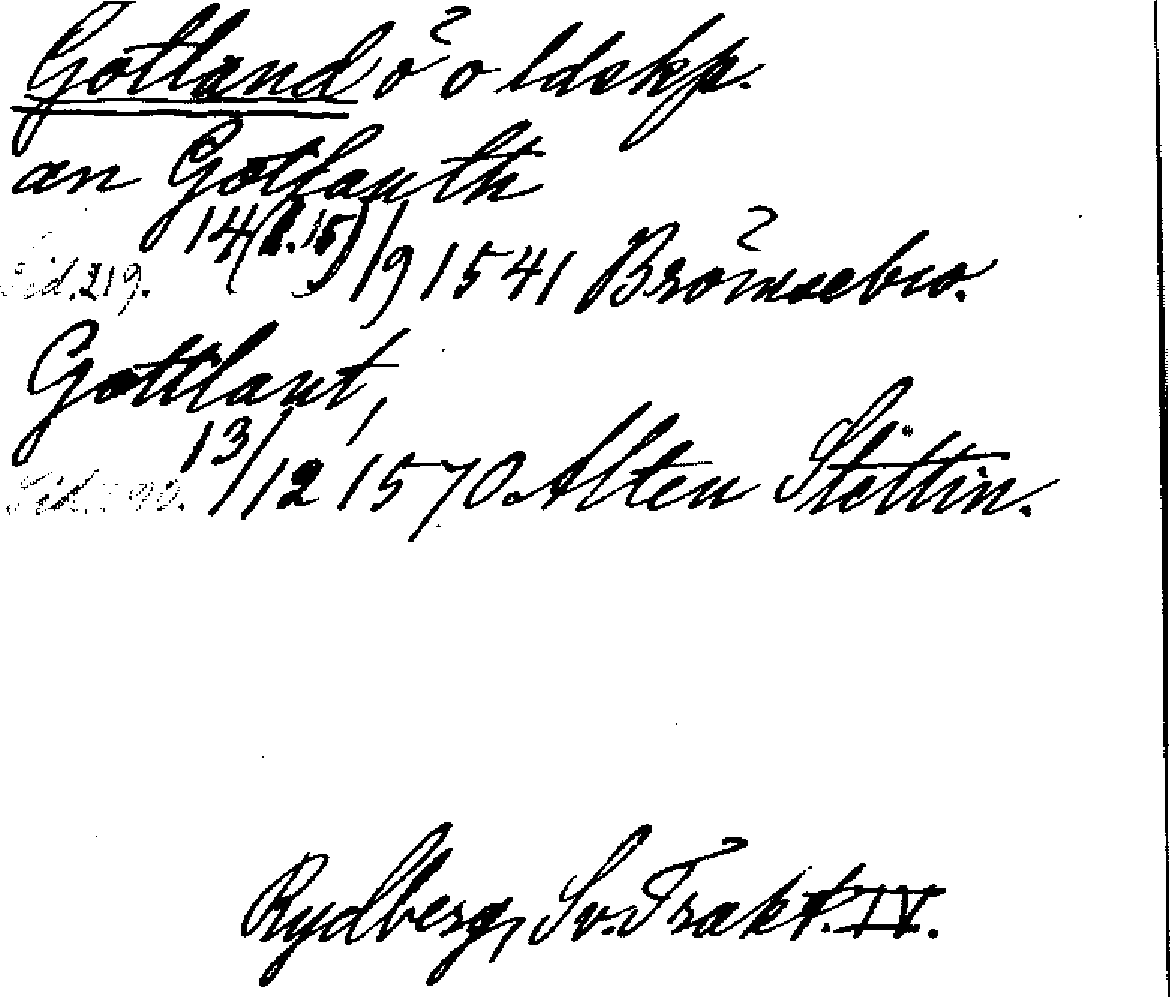 Gotland ö o ldskp.
an Gotlanth
Sid. 219. 14(l. 15)/9 1541 Brömsebro.
Gottlant,
13/12 1570 Alten Stettin.
Rydberg, Sv. Trakt. IV.